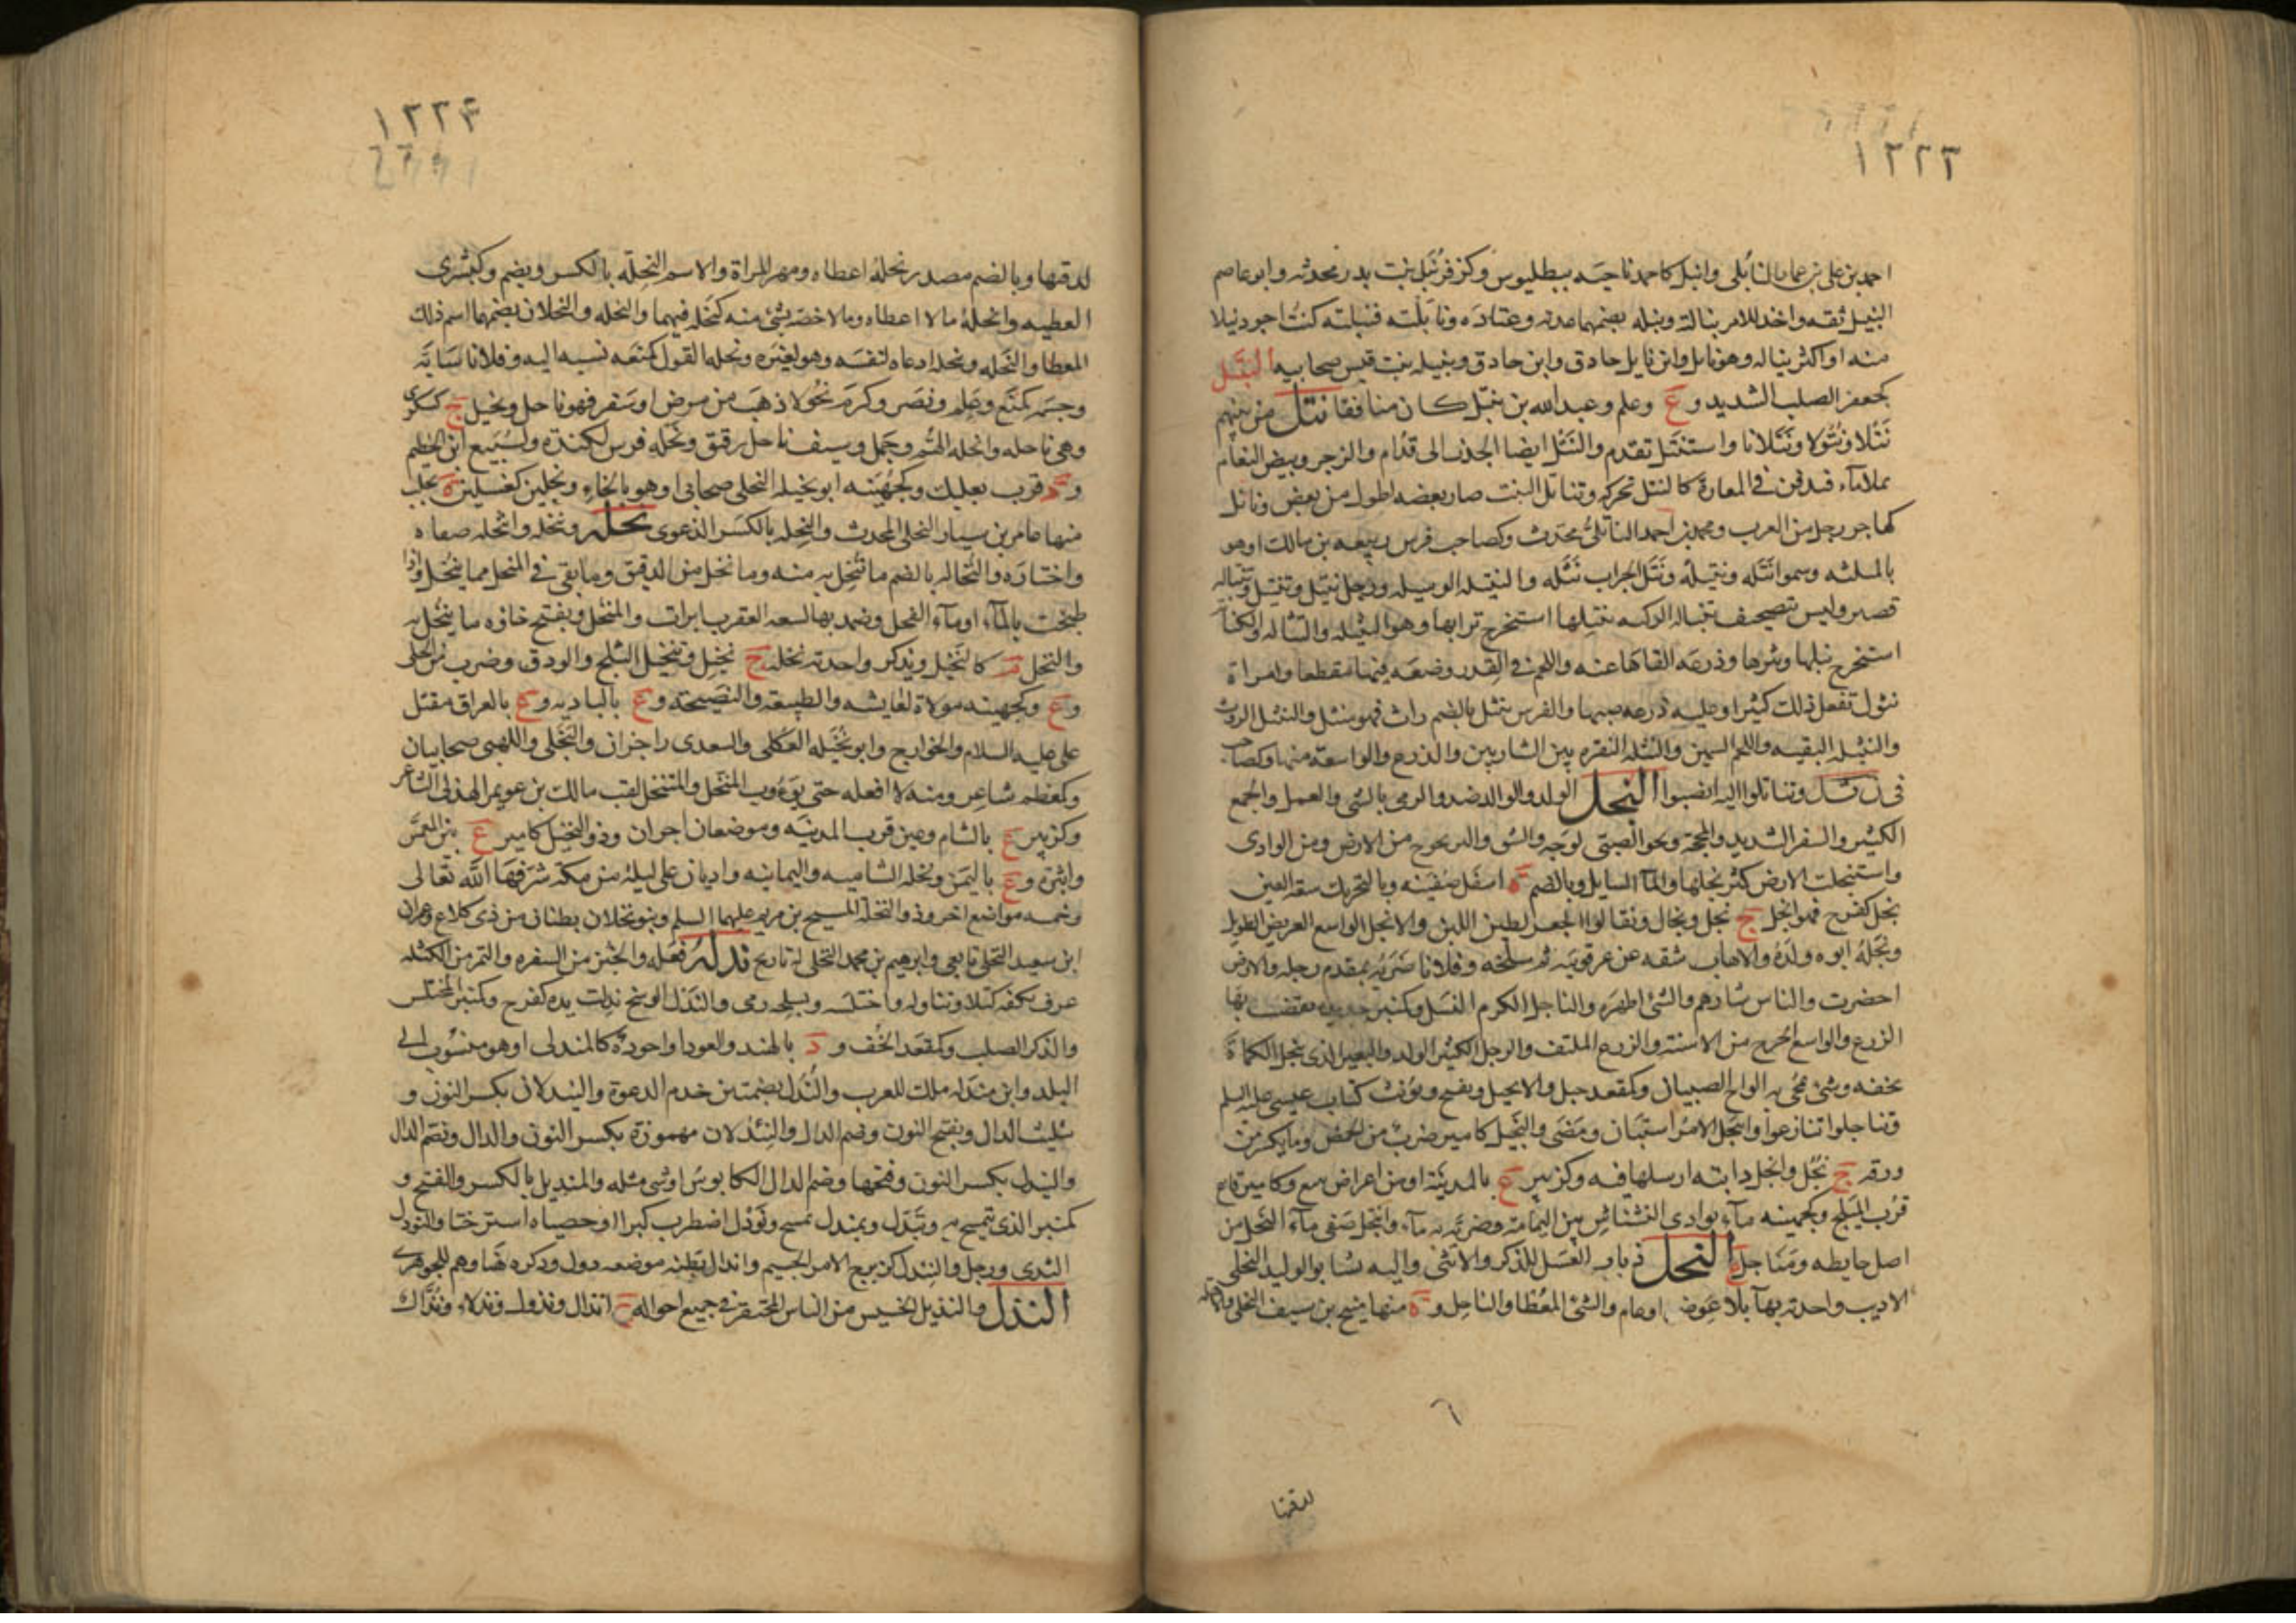 ١٢٢٣
احمد بن على بن عمار النابلى وانبل كاحمد ناحيه ببطليوس وكزفر نبل بنت بدر محدثه وابو عاصم
النبيل ثقه واخد للامر نباله ونبله بضمهما عدته وعتاده ونابلته فنبلته كنت اجود نبلا
منه او اكثر نباله وهو نابل وابن نابل حاذق وابن حاذق ونبيله بنت قيس صحابيه النبتل
كجعفر الصلب الشديد وع وعلم وعبد الله بن نبتل كان منافقا نتل من بينهم
نتلا ونتولا ونتلانا واستنتل تقدم والنتل ايضا الجذب الى قدام والزجر وبيض النعام
يملا ماء فيدفن فى المفازة كالنتل محركه وتناتل النبت صار بعضه اطول من بعض وناتل
كهاجر رجل من العرب ومحمد بن احمد الناتلى محدث وكصاحب فرس ربيعه بن مالك او هو
بالمثلثه وسموا نتله ونتيله ونتل الجراب نثله والنتيله الوسيله ورجل نتل
قصير وليس تصحيف تنباله الركيه ينثلها استخرج ترابها وهو النثيله والنثاله والكنانه
استخرج نبلها ونثرها وذرعه القاها عنه واللحم فى القدر وضعه فيها مقطعا وامراة
نثول تفعل ذلك كثيرا وعليه ذرعه صبها والفرس ينثل بالضم راث فهو منثل والنثيل الروث
والنثيله البقيه واللحم السمين والنثله النقره بين الشاربين والدرع والواسعة منها وكصاحب
وتناثلوا اليه انصبوا النجل الولد والوالد ضد والرمى بالشى والعمل والجمع
الكثير والسير الشديد والمحجة ومحو الصبى لوحه والشق والنز يخرج من الارض ومن الوادى
واستنجلت الارض كثر نجلها والماء السايل وبالضم ه اسفل صفينه وبالتحريك سعة العين
نجل كفرح فهو انجل ج نجل ونجال ونقالوا الجعو لطين اللبن والانجل الواسع العريض الطويل
ونجله ابوه ولده والاهاب شقه عن عرقوبيه ثم سلخه وفلانا ضربه بمقدم رجله والارض
اخضرت والناس شارهم والشى اظهره والناجل الكريم النسل وكمنبر حديدة يقضب بها
الزرع والواسع الجرح من الاسنة والزرع الملتف والرجل الكثير الولد والبعير الذى ينجل الكماة
بخفه وشى يمحى به الواح الصبيان وكمقعد جبل والانجيل ويفتح ويونث كتاب عيسى عليه السلم
وتناجلوا تنازعوا وانتجل الامر استبان ومضى والنجيل كامير ضرب من الحمض وما تكسر من
ورقه ج نجل وانجل دابته ارسلها فيه وكزبير ع بالمدينة او من اعراض ينبع وكامير قاع
قرب المسلح وكجهينه ماء بوادى النشناش بين اليمامة وضريه ماء وانتجل صفى ماء النجل من
اصل حايطه ومناجل ع النحل ذباب العسل للذكر والانثى واليه نسب ابو الوليد النحلى
الاديب واحدته بهاء بلا عوض او عام والشى المعطا والناحل وه منها منيح بن سيف النحلى
لدقتها
١٢٢٤
لدقتها وبالضم مصدر نحله اعطاه ومهر المراة والاسم النحله بالكسر ويضم وكبشرى
العطيه وانحله مالا اعطاه ومالا خصه بشى منه كنحله فيهما والنحله والنحلان بضمهما اسم ذلك
المعطا وانتحله وتنحله ادعاه لنفسه وهو لغيره ونحله القول كمنعه نسبه اليه وفلانا سابه
وجسمه كمنع وعلم ونصر وكرم نحولا ذهب من مرض او سفر فهو ناحل ونحيل ج كسكرى
وهى ناحله وانحله الهم وجمل وسيف ناحل رقيق ونحله فرس لكندة ولسبيع ابن الخطيم
وه قرب بعلبك وكجهينه ابو نحيله النحلى صحابى او هو بالخاء ونحلين كغسلين ه بحلب
منها عامر بن سيار النحلى المحدث والنحله بالكسر الدعوى نخله وتنخله وانتخله صفاه
واختاره والنخاله بالضم ما تنخل به منه وما نخل من الدقيق وما بقى فى المنخل مما ينخل واذا
طبخت بالماء او ماء الفجل وضمد بها لسعة العقرب ابرات والمنخل ويفتح خاؤه ما ينخل به
والنخل م كالنخيل ويذكر واحدته نخله ج نخيل وتنخيل الثلج والودق وضرب من الحلى
وع وكجهينه مولاة لعايشه والطبيعة والنصيحة وع بالباديه وع بالعراق مقتل
على عليه السلام والخوارج وابو نخيله العكلى والسعدى راجزان والبجلى واللهبى صحابيان
وكمعظم شاعر ومنه لا افعله حتى يؤوب المنخل والمتنخل لقب مالك بن عويمر الهذلى الشاعر
وكزبير ع بالشام وعين قرب المدينه وموضعان اخران وذو النخيل كامير ع بين المغمس
واثبرة وع باليمن ونخله الشاميه واليمانيه واديان على ليلة من مكة شرفها الله تعالى
وخمسه مواضع اخر وذو النخلة المسيح بن مريم عليهما السلم وبنو نخلان بطنان من ذى كلاع وعمران
ابن سعيد النخلى تابعى وابرهيم بن محمد النخلى له تاريخ ندله نقله والخبز من السفره والتمر من الكتله
غرف بكفه كتلا وتناوله واختلسه وبسلحه رمى والندل الوسخ ندلت يده كفرح وكمنبر المختلس
والذكر الصلب وكمقعد الخف ود بالهند والعود او اجوده كالمندلى او هو منسوب الى
البلد وابن مندله ملك للعرب والندل بضمتين خدم الدعوة والنيدلان بكسر النون و
تثليث الدال وبفتح النون وضم الدال والنئدلان مهموزة بكسر النون والدال وتضم الدال
والنيدل بكسر النون وفتحها وضم الدال الكابوس او شى مثله والمنديل بالكسر والفتح و
كمنبر الذى يتمسح به وتندل وتمندل تمسح ونودل اضطرب كبرا او خصياه استرختا والنودل
الثدى ورجل والنيدل كزبرج الامر الجسيم واندال بطنه موضعه دول وذكره هنا وهم للجوهرى
النذل والنذيل الخسيس من الناس المحتقر فى جميع احواله ج انذال ونذول ونذلاء ونذال